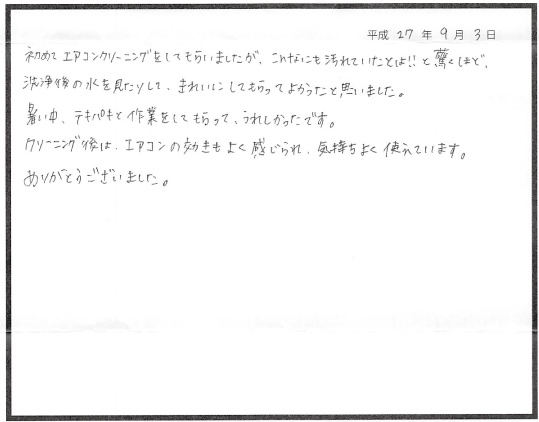 平成 27 年 9 月 3 日
初めてエアコンクリーニングをしてもらいましたが、こんなにも汚れていたとは!!と驚くほどで、
洗浄後の水を見たりして、きれいにしてもらってよかったと思いました。
暑い中、テキパキと作業をしてもらって、うれしかったです。
クリーニング後は、エアコンの効きもよく感じられ、気持ちよく使えています。
ありがとうございました。